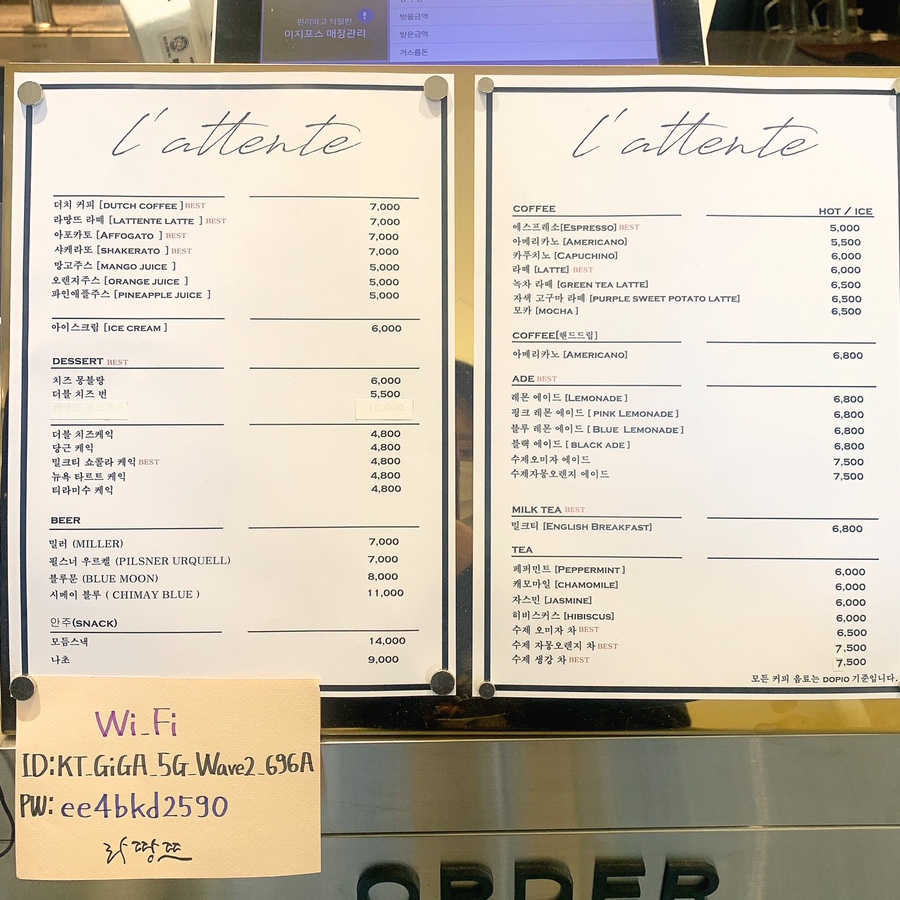 편리하고 딕월한
이지포스 매장관리
받을금액
받은금액
거스름돈
l'attente
더치 커피 [DUTCH COFFEE] BEST 7,000
라땅뜨 라떼 [LATTENTE LATTE ] BEST 7,000
아포카토 [AFFOGATO ] BEST 7,000
샤케라또 [SHAKERATO ] BEST 7,000
망고주스 [MANGO JUICE ] 5,000
오렌지주스 [ORANGE JUICE ] 5,000
파인애플주스 [PINEAPPLE JUICE ] 5,000
아이스크림 [ICE CREAM ] 6,000
DESSERT BEST
치즈 몽블랑 6,000
더블 치즈 번 5,500
10,000
더블 치즈케익 4,800
당근 케익 4,800
밀크티 쇼콜라 케익 BEST 4,800
뉴욕 타르트 케익 4,800
티라미수 케익 4,800
BEER
밀러 (MILLER) 7,000
필스너 우르켈 (PILSNER URQUELL) 7,000
블루문 (BLUE MOON) 8,000
시메이 블루 ( CHIMAY BLUE ) 11,000
안주(SNACK)
모듬스낵 14,000
나초 9,000
l'attente
COFFEE HOT / ICE
에스프레소[ESPRESSO] BEST 5,000
아메리카노 [AMERICANO] 5,500
카푸치노 [CAPUCHINO] 6,000
라떼 [LATTE] BEST 6,000
녹차 라떼 [GREEN TEA LATTE] 6,500
자색 고구마 라떼 [PURPLE SWEET POTATO LATTE] 6,500
모카 [MOCHA ] 6,500
COFFEE[핸드드립]
아메리카노 [AMERICANO] 6,800
ADE BEST
레몬 에이드 [LEMONADE ] 6,800
핑크 레몬 에이드 [ PINK LEMONADE ] 6,800
블루 레몬 에이드 [ BLUE LEMONADE ] 6,800
블랙 에이드 [ BLACK ADE ] 6,800
수제오미자 에이드 7,500
수제자몽오렌지 에이드 7,500
MILK TEA BEST
밀크티 [ENGLISH BREAKFAST] 6,800
TEA
페퍼민트 [PEPPERMINT ] 6,000
캐모마일 [CHAMOMILE] 6,000
자스민 [JASMINE] 6,000
히비스커스 [HIBISCUS] 6,000
수제 오미자 차 BEST 6,500
수제 자몽오렌지 차 BEST 7,500
수제 생강 차 BEST 7,500
모든 커피 음료는 DOPIO 기준입니다.
Wi-Fi
ID:KT_GiGA_5G_Wave2_696A
PW: ee4bkd2590
라땅뜨
ORDER